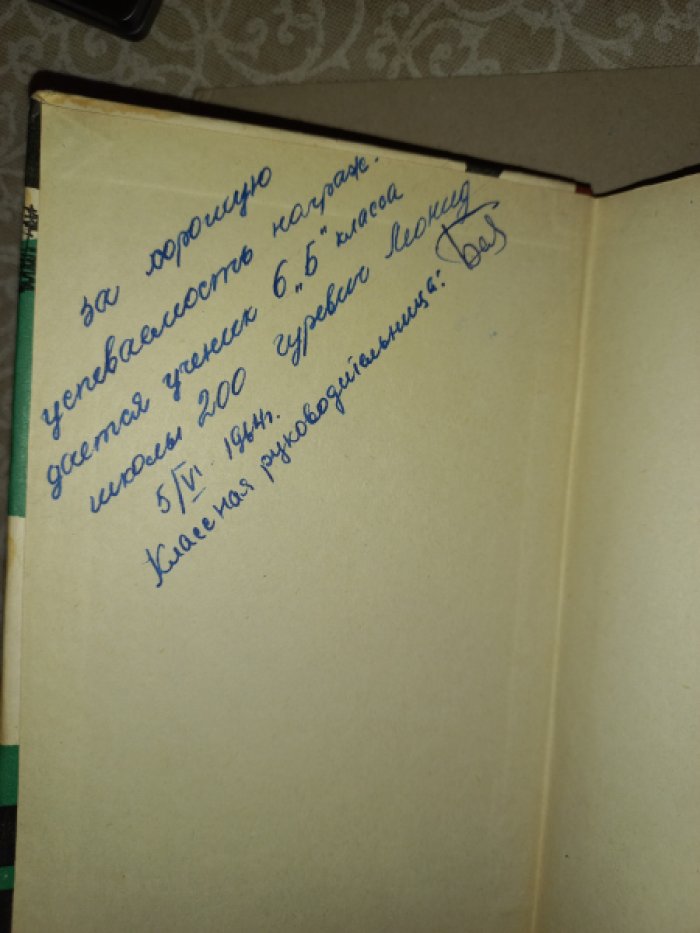 за хорошую
успеваемость награж-
дается ученик 6 „Б" класса
школы 200 гуревич Леонид
5/VI 1964г.
Классная руководительница: